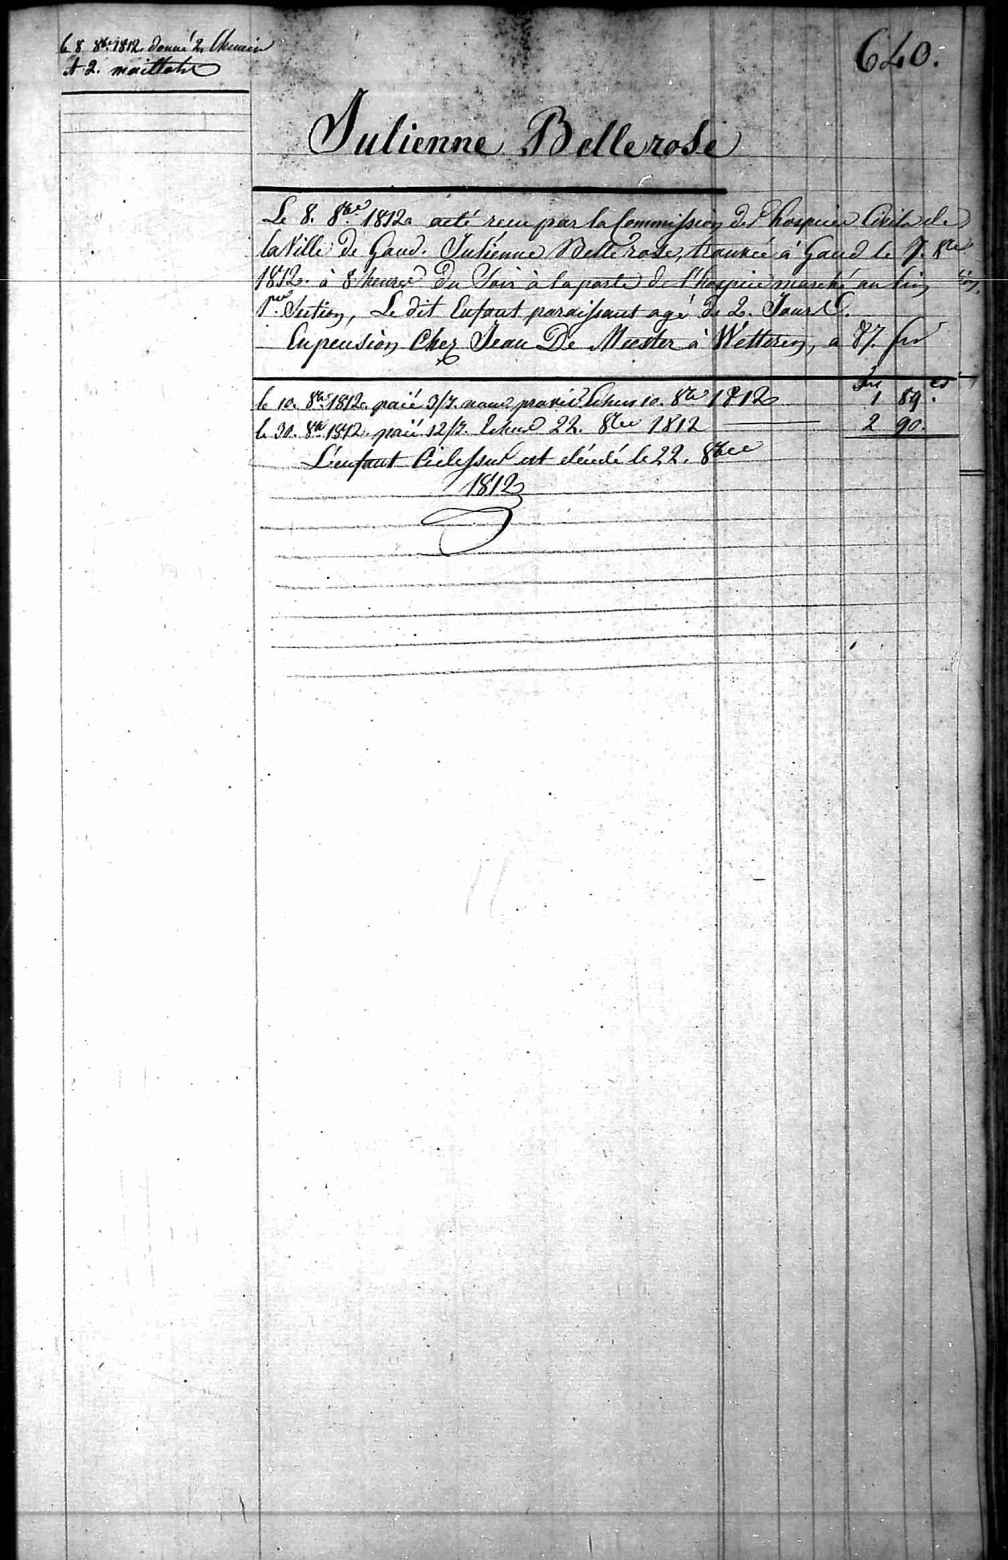 Le 8. 8bre 1812. donné 2. Chemise
et 2. maillots
640.
Julienne Bellerose
Le 8. 8bre 1812 a eté recu par la Commission des hospices Civils de
la Ville de Gand. Julienne Bellerose, trouvée à Gand le 7. 8bre
1812. à 8 heures du Soir à la porte de l'hospice marché au lin
1re Section, Le dit Enfant paraissant agé de 2. Jours.
En pension Chez Jean De Meester à Wetteren, a 87. frs
frs cs
le 10. 8bre 1812. paié 3/7. mans echus 10. 8bre 1812 1 89.
le 30. 8bre 1812. paié 12/7. Echus 22. 8bre 1812 2 90.
L'enfant Cidessus est décédé le 22. 8bre
1812